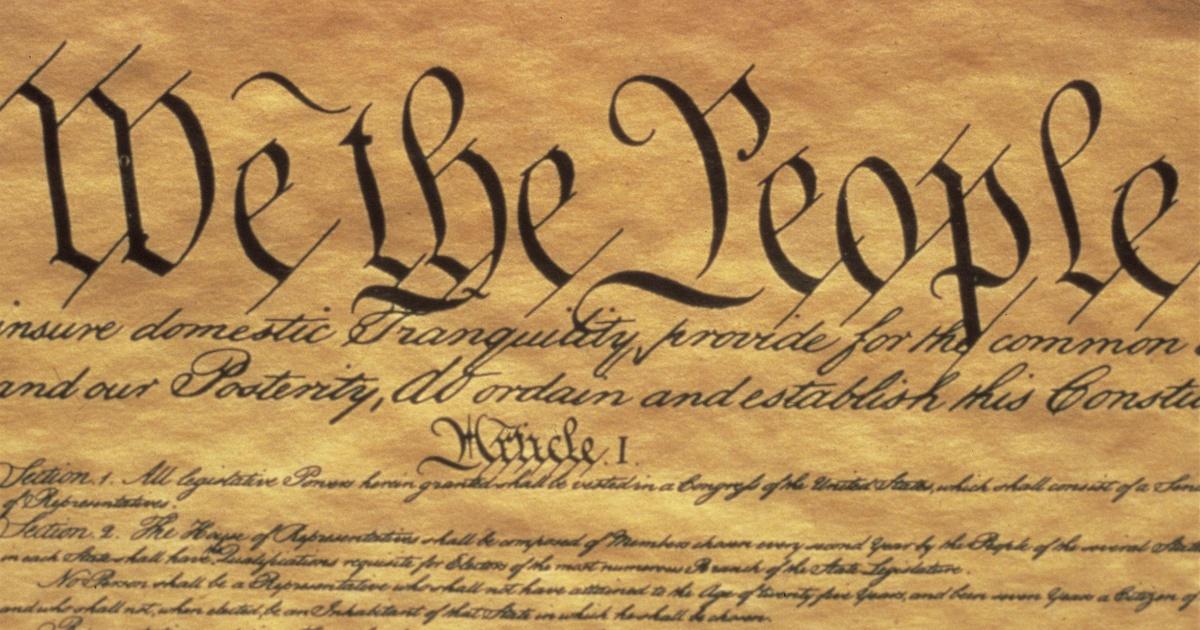 We the People
insure domestic Tranquility, provide for the common
and our Posterity, do ordain and establish this Constit
Article. I.
Section. 1. All legislative Powers herein granted shall be vested in a Congress of the United States, which shall consist of a Sen
of Representatives.
Section. 2. The House of Representatives shall be composed of Members chosen every second Year by the People of the several Stat
in each State shall have Qualifications requisite for Electors of the most numerous Branch of the State Legislature.
No Person shall be a Representative who shall not have attained to the Age of twenty five Years, and been seven Years a Citizen of
and who shall not, when elected, be an Inhabitant of that State in which he shall be chosen.